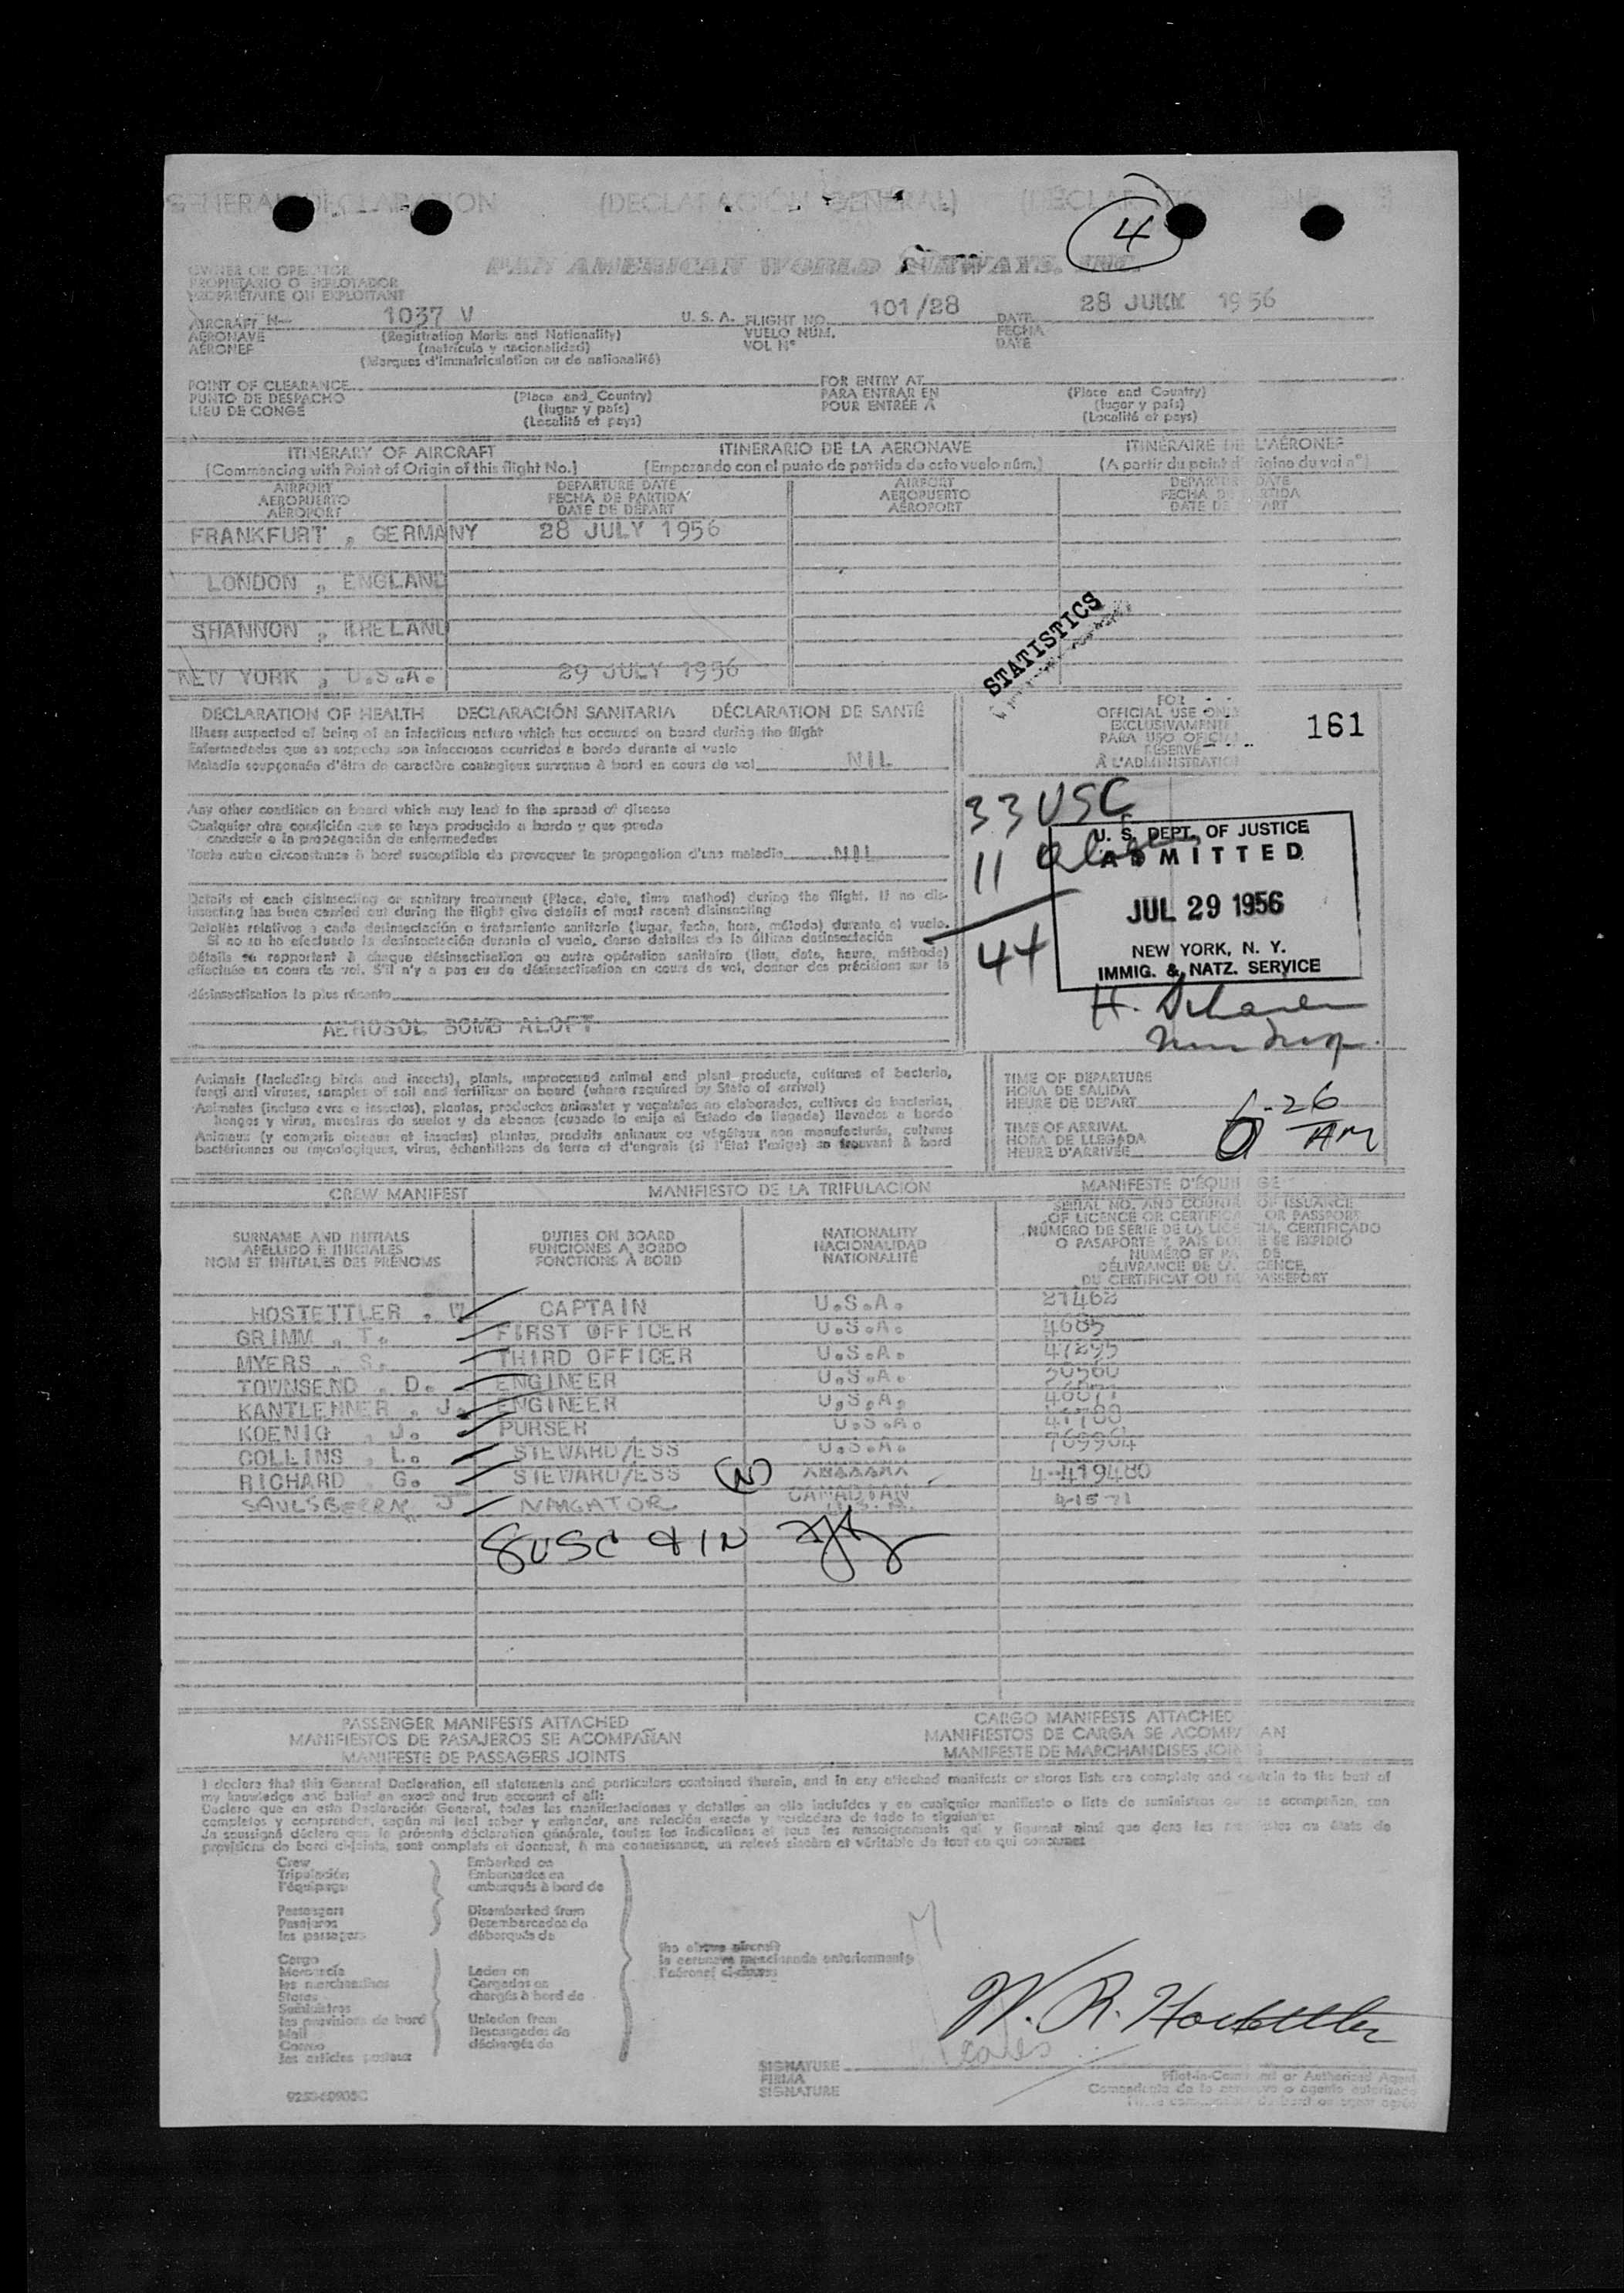 GENERAL DECLARATION (DECLARACIÓN GENERAL)
4
PAN AMERICAN WORLD AIRWAYS, INC.
OWNER OR OPERATOR
PROPIETARIO O EXPLOTADOR
PROPRIÉTAIRE OU EXPLOITANT
AIRCRAFT N— 1037 V U. S. A. FLIGHT NO. 101/28 DATE 28 JULY 1956
AERONAVE (Registration Marks and Nationality) VUELO NÚM. FECHA
AÉRONEF (matrícula y nacionalidad) VOL Nº DATE
(Marques d'immatriculation ou de nationalité)
POINT OF CLEARANCE FOR ENTRY AT
PUNTO DE DESPACHO (Place and Country) PARA ENTRAR EN (Place and Country)
LIEU DE CONGÉ (lugar y país) POUR ENTRÉE À (lugar y país)
(Localité et pays) (Localité et pays)
ITINERARY OF AIRCRAFT ITINERARIO DE LA AERONAVE ITINÉRAIRE DE L'AÉRONEF
(Commencing with Point of Origin of this flight No.) (Empezando con el punto de partida de este vuelo núm.) (A partir du point d'origine du vol nº)
AIRPORT DEPARTURE DATE AIRPORT DEPARTURE DATE
AEROPUERTO FECHA DE PARTIDA AEROPUERTO FECHA DE PARTIDA
AÉROPORT DATE DE DÉPART AÉROPORT DATE DE DÉPART
FRANKFURT , GERMANY 28 JULY 1956
LONDON , ENGLAND
SHANNON , IRELAND
NEW YORK , U.S.A. 29 JULY 1956
STATISTICS
DECLARATION OF HEALTH DECLARACIÓN SANITARIA DÉCLARATION DE SANTÉ
Illness suspected of being of an infectious nature which has occured on board during the flight
Enfermedades que se sospecha son infecciosas ocurridas a bordo durante el vuelo
Maladie soupçonnée d'être de caractère contagieux survenue à bord en cours de vol NIL
FOR
OFFICIAL USE ONLY
EXCLUSIVAMENTE
PARA USO OFICIAL
RÉSERVÉ
À L'ADMINISTRATION
161
Any other condition on board which may lead to the spread of disease
Cualquier otra condición que se haya producido a bordo y que pueda
conducir a la propagación de enfermedades
Toute autre circonstance à bord susceptible de provoquer la propagation d'une maladie NIL
33 USC
11 Aliens
44
U. S. DEPT. OF JUSTICE
ADMITTED
JUL 29 1956
NEW YORK, N. Y.
IMMIG. & NATZ. SERVICE
Details of each disinsecting or sanitary treatment (Place, date, time method) during the flight. If no dis-
insecting has been carried out during the flight give details of most recent disinsecting
Detalles relativos a cada desinsectación o tratamiento sanitario (lugar, fecha, hora, método) durante el vuelo.
Si no se ha efectuado la desinsectación durante el vuelo, dense detalles de la última desinsectación
Détails se rapportant à chaque désinsectisation ou autre opération sanitaire (lieu, date, heure, méthode)
effectuée en cours de vol. S'il n'y a pas eu de désinsectisation en cours de vol, donner des précisions sur la
désinsectisation la plus récente
AEROSOL BOMB ALOFT
Animals (including birds and insects), plants, unprocessed animal and plant products, cultures of bacteria,
fungi and viruses, samples of soil and fertilizer on board (where required by State of arrival)
Animales (incluso aves e insectos), plantas, productos animales y vegetales no elaborados, cultivos de bacterias,
hongos y virus, muestras de suelos y de abonos (cuando lo exija el Estado de llegada) llevados a bordo
Animaux (y compris oiseaux et insectes) plantes, produits animaux ou végétaux non manufacturés, cultures
bactériennes ou mycologiques, virus, échantillons de terre et d'engrais (si l'État l'exige) se trouvant à bord
TIME OF DEPARTURE
HORA DE SALIDA
HEURE DE DÉPART
TIME OF ARRIVAL
HORA DE LLEGADA
HEURE D'ARRIVÉE
6-26 AM
CREW MANIFEST MANIFIESTO DE LA TRIPULACIÓN MANIFESTE D'ÉQUIPAGE
SURNAME AND INITIALS DUTIES ON BOARD NATIONALITY SERIAL NO. AND COUNTRY OF ISSUANCE
APELLIDO E INICIALES FUNCIONES A BORDO NACIONALIDAD OF LICENCE OR CERTIFICATE OR PASSPORT
NOM ET INITIALES DES PRÉNOMS FONCTIONS À BORD NATIONALITÉ NÚMERO DE SERIE DE LA LICENCIA, CERTIFICADO
O PASAPORTE Y PAÍS DONDE SE EXPIDIÓ
NUMÉRO ET PAYS DE
DÉLIVRANCE DE LA LICENCE,
DU CERTIFICAT OU DU PASSEPORT
HOSTETTLER . W CAPTAIN U.S.A. 21462
GRIMM , T. FIRST OFFICER U.S.A. 4685
MYERS . S. THIRD OFFICER U.S.A. 47295
TOWNSEND , D. ENGINEER U.S.A. 30560
KANTLEHNER , J. ENGINEER U.S.A.
KOENIG , J. PURSER U.S.A. 41788
COLLINS , L. STEWARD/ESS U.S.A. 769964
RICHARD G. STEWARD/ESS (N) CANADIAN 4-419480
SAULSBERRY, J NAVIGATOR
8 USC & 1 N
PASSENGER MANIFESTS ATTACHED CARGO MANIFESTS ATTACHED
MANIFIESTOS DE PASAJEROS SE ACOMPAÑAN MANIFIESTOS DE CARGA SE ACOMPAÑAN
MANIFESTE DE PASSAGERS JOINTS MANIFESTE DE MARCHANDISES JOINTS
I declare that this General Declaration, all statements and particulars contained therein, and in any attached manifests or stores lists are complete and certain to the best of
my knowledge and belief an exact and true account of all:
Declaro que en esta Declaración General, todas las manifestaciones y detalles en ella incluídos y en cualquier manifiesto o lista de suministros que se acompañan, son
completos y comprenden, según mi leal saber y entender, una relación exacta y verdadera de todo lo siguiente:
Je soussigné déclare que la présente déclaration générale, toutes les indications et tous les renseignements qui y figurent ainsi que dans les manifestes ou états de
provisions de bord ci-joints, sont complets et donnent, à ma connaissance, un relevé sincère et véritable de tout ce qui concerne:
Crew Embarked on
Tripulación Embarcados en
l'équipage embarqués à bord de
Passengers Disembarked from
Pasajeros Desembarcados de
les passagers débarqués de
the above aircraft
la aeronave mencionada anteriormente
l'aéronef ci-dessus
Cargo
Mercancía Laden on
les marchandises Cargados en
Stores chargés à bord de
Suministros
les provisions de bord Unladen from
Mail Descargados de
Correo déchargés de
les articles postaux
W. R. Hostettler
SIGNATURE
FIRMA
SIGNATURE
Pilot-in-Command or Authorized Agent
Comandante de la aeronave o agente autorizado